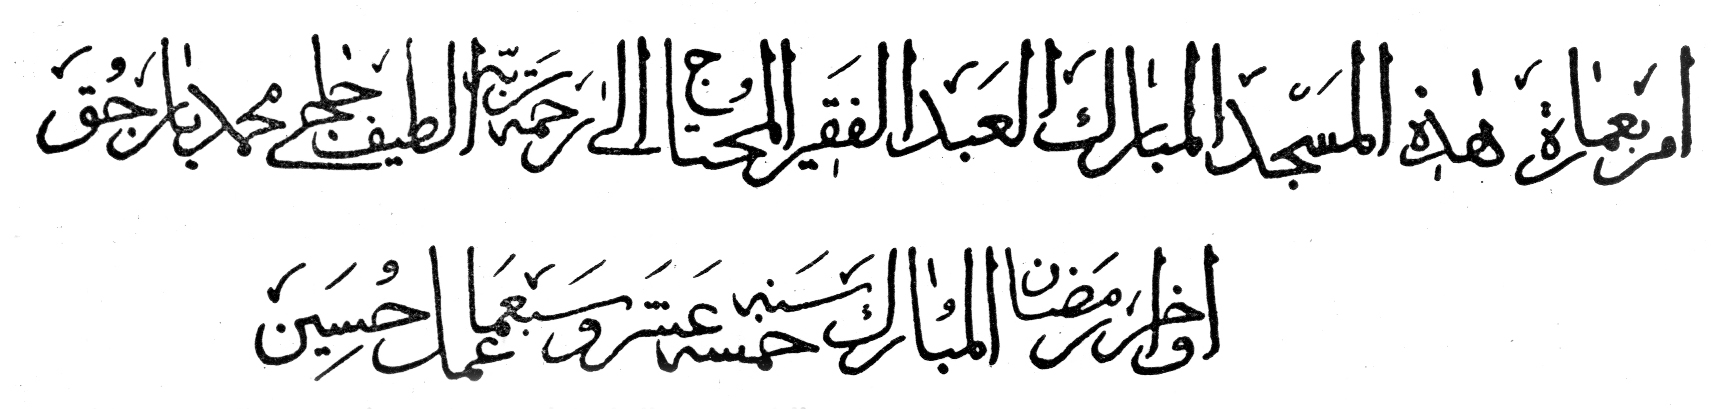 امر بعمارة هذه المسجد المبارك العبد الفقير المحتاج الى رحمة ربه اللطيف خلجي محمد بن بارجق
اواخر رمضان المبارك سنه خمسه عشر وسبعماىه عمل حسين